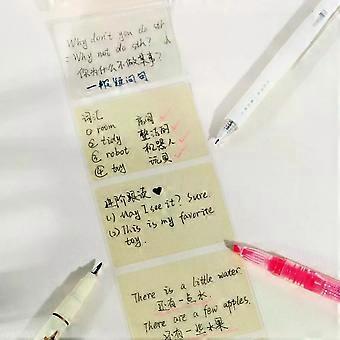 Why don't you do sth
= Why not do sth?
你为什么不做某事?
一般疑问句
词汇
① room 房间
② tidy 整洁的
③ robot 机器人
④ toy 玩具
进阶跟读 ♥
(1) May I see it? Sure.
(2) This is my favorite
toy.
There is a little water.
还有一点水.
There are a few apples.
还有一些水果